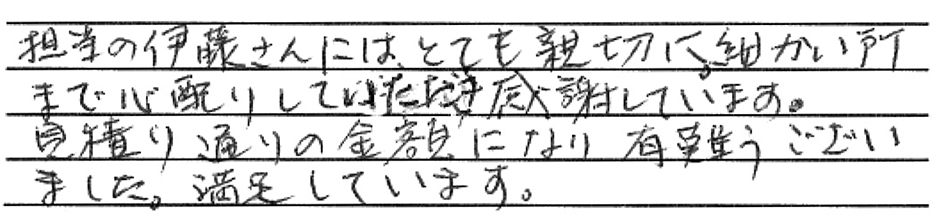 担当の伊藤さんには、とても親切に、細かい所
まで心配りしていただき感謝しています。
見積り通りの金額になり有難うござい
ました。満足しています。